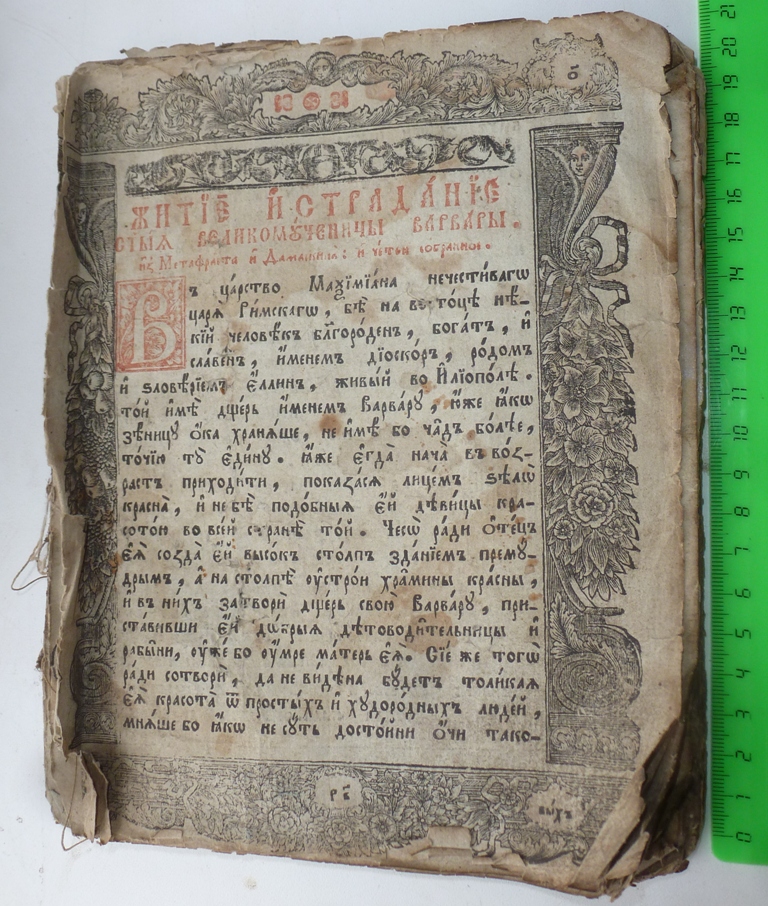 ЖИТІЕ И҆ СТРАДА́НІЕ
СТЫѦ ВЕЛИКОМꙋ́ЧЕНИЦЫ ВАРВАРЫ.
И҆з̾ Метафраста и҆ Дамаскина: и҆
Въ ца́рство Маѯїмїа́на нечести́вагѡ
царѧ̀ Ри́мскагѡ, бѣ̀ на восто́цѣ нѣ́‐
кїй человѣ́къ блг҃оро́денъ, бога́тъ, и҆
сла́венъ, и҆́менемъ дїо́скоръ, ро́домъ
и҆ ѕловѣ́рїемъ Е҆́ллинъ, живы́й во И҆лїопо́лѣ.
то́й и҆мѣ̀ дще́рь и҆́менемъ Варва́рꙋ, ю҆́же ꙗ҆́кѡ
зѣ́ницꙋ ѻ҆́ка хранѧ́ше, не и҆мѣ̀ бо ча̑дъ бо́лѣе,
то́чїю тꙋ̀ є҆ди́нꙋ. ꙗ҆́же є҆гда̀ нача̀ въ во́з‐
растъ приходи́ти, показа́сѧ лице́мъ ѕѣлѡ̀
красна̀, и҆ не бѣ̀ подо́бныѧ є҆́й дѣви́цы кра‐
сото́ю во все́й странѣ̀ то́й. Чесѡ̀ ра́ди ѻ҆те́цъ
є҆ѧ̀ созда̀ є҆́й высо́къ сто́лпъ зда́нїемъ премꙋ́‐
дрымъ, а҆ на столпѣ̀ ᲂу҆стро́и хра́мины кра́сны,
и҆ въ ни́хъ затворѝ дще́рь свою̀ Варва́рꙋ, при‐
ста́вивши є҆́й дѡ́брыѧ дѣтоводи́тельницы и҆
рабы́ни, ᲂу҆же́ бо ᲂу҆́мре ма́терь є҆ѧ̀. Сїе́ же тогѡ̀
ра́ди сотворѝ, да не ви́дѣна бꙋ́детъ толи́каѧ
є҆ѧ̀ красота̀ ѿ просты́хъ и҆ хꙋдоро́дныхъ люде́й,
мнѧ́ше бо ꙗ҆́кѡ не сꙋ́ть досто́йни ѻ҆́чи тако‐
вы́хъ
0 1 2 3 4 5 6 7 8 9 10 11 12 13 14 15 16 17 18 19 20 21